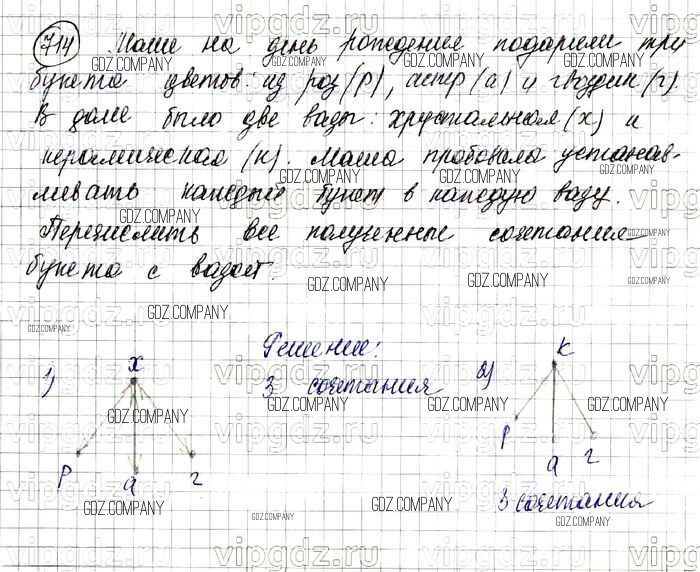 714 Маше на день рождения подарили три
букета цветов: из роз (р), астр (а) и гвоздик (г).
В доме было две вазы: хрустальная (х) и
керамическая (к). Маша пробовала устанав-
ливать каждый букет в каждую вазу.
Перечислить все полученные сочетания
букета с вазой.
Решение:
1)
х
р а г
3 сочетания
2)
к
р а г
3 сочетания
vipgdz.ru
GDZ.COMPANY